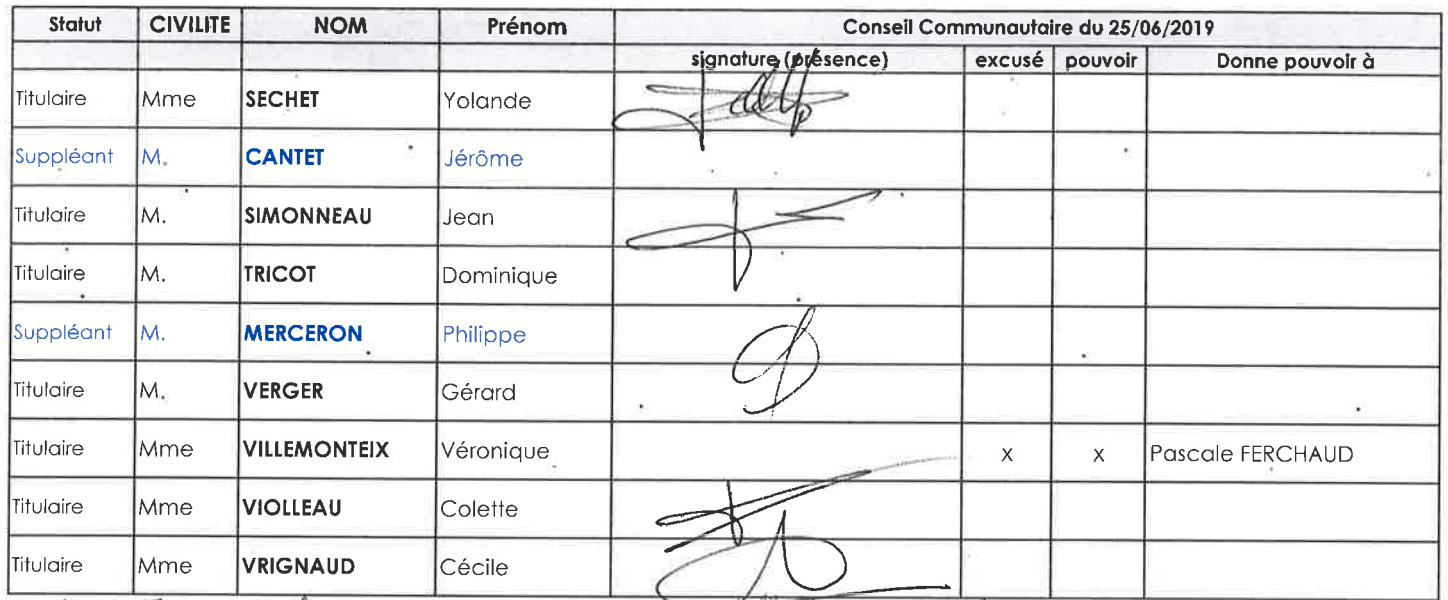 Statut CIVILITE NOM Prénom Conseil Communautaire du 25/06/2019
signature (présence) excusé pouvoir Donne pouvoir à
Titulaire Mme SECHET Yolande
Suppléant M. CANTET Jérôme
Titulaire M. SIMONNEAU Jean
Titulaire M. TRICOT Dominique
Suppléant M. MERCERON Philippe
Titulaire M. VERGER Gérard
Titulaire Mme VILLEMONTEIX Véronique x x Pascale FERCHAUD
Titulaire Mme VIOLLEAU Colette
Titulaire Mme VRIGNAUD Cécile